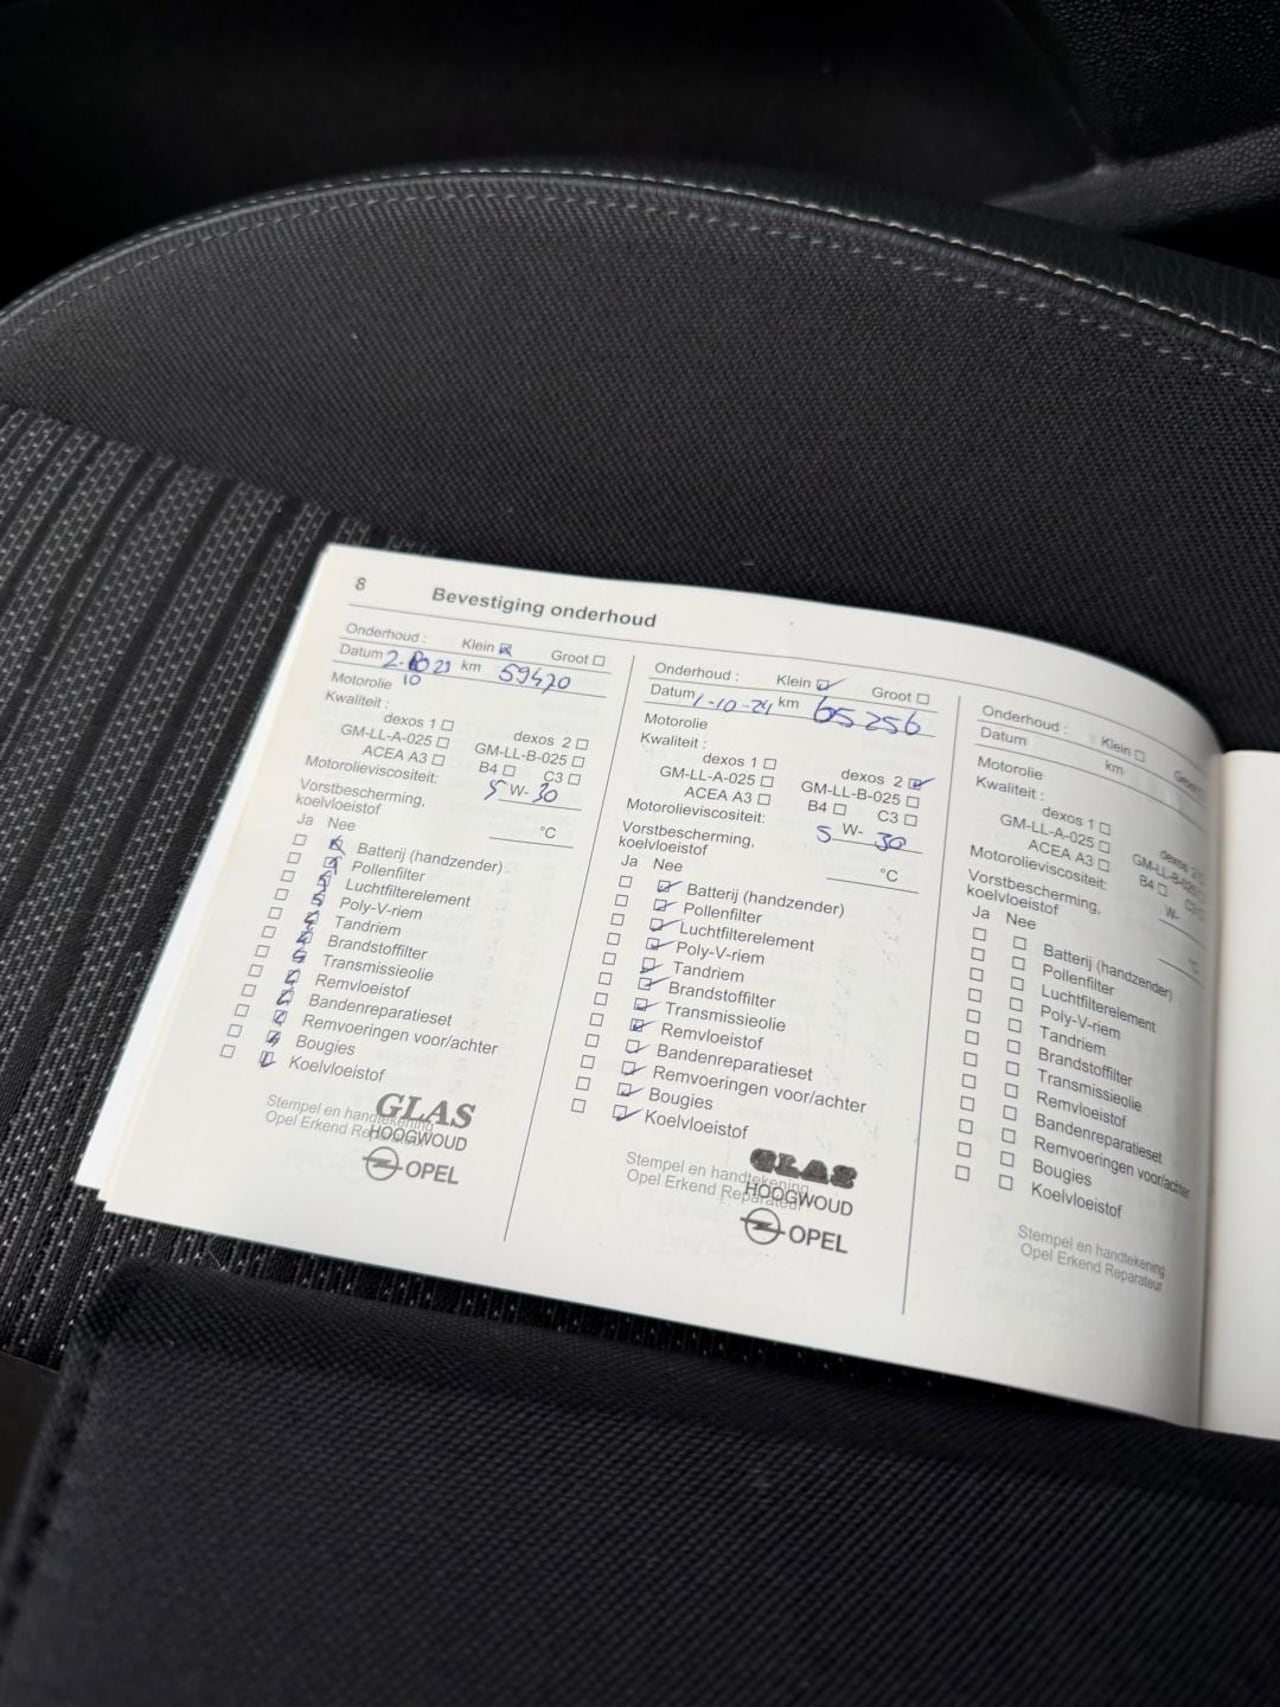 8 Bevestiging onderhoud
Onderhoud : Klein Groot
Datum 2- 23 km 59470
10
Motorolie
Kwaliteit :
dexos 1 dexos 2
GM-LL-A-025 GM-LL-B-025
ACEA A3 B4 C3
Motorolieviscositeit: 5 W- 30
Vorstbescherming,
koelvloeistof °C
Ja Nee
Batterij (handzender)
Pollenfilter
Luchtfilterelement
Poly-V-riem
Tandriem
Brandstoffilter
Transmissieolie
Remvloeistof
Bandenreparatieset
Remvoeringen voor/achter
Bougies
Koelvloeistof
Stempel en handtekening
Opel Erkend Reparateur
GLAS
HOOGWOUD
OPEL
Onderhoud : Klein Groot
Datum 1-10-24 km 65256
Motorolie
Kwaliteit :
dexos 1 dexos 2
GM-LL-A-025 GM-LL-B-025
ACEA A3 B4 C3
Motorolieviscositeit: 5 W- 30
Vorstbescherming,
koelvloeistof °C
Ja Nee
Batterij (handzender)
Pollenfilter
Luchtfilterelement
Poly-V-riem
Tandriem
Brandstoffilter
Transmissieolie
Remvloeistof
Bandenreparatieset
Remvoeringen voor/achter
Bougies
Koelvloeistof
Stempel en handtekening
Opel Erkend Reparateur
GLAS
HOOGWOUD
OPEL
Onderhoud : Klein
Datum km
Motorolie
Kwaliteit :
dexos 1 dexos 2
GM-LL-A-025 GM-LL-B-025
ACEA A3 B4 C3
Motorolieviscositeit: W-
Vorstbescherming,
koelvloeistof °C
Ja Nee
Batterij (handzender)
Pollenfilter
Luchtfilterelement
Poly-V-riem
Tandriem
Brandstoffilter
Transmissieolie
Remvloeistof
Bandenreparatieset
Remvoeringen voor/achter
Bougies
Koelvloeistof
Stempel en handtekening
Opel Erkend Reparateur